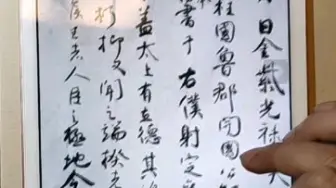 日金紫光祿
柱國魯郡開國公
書于右僕射定
蓋太上有立德其
朽抑又聞之端揆者
侯王者人臣之極地今